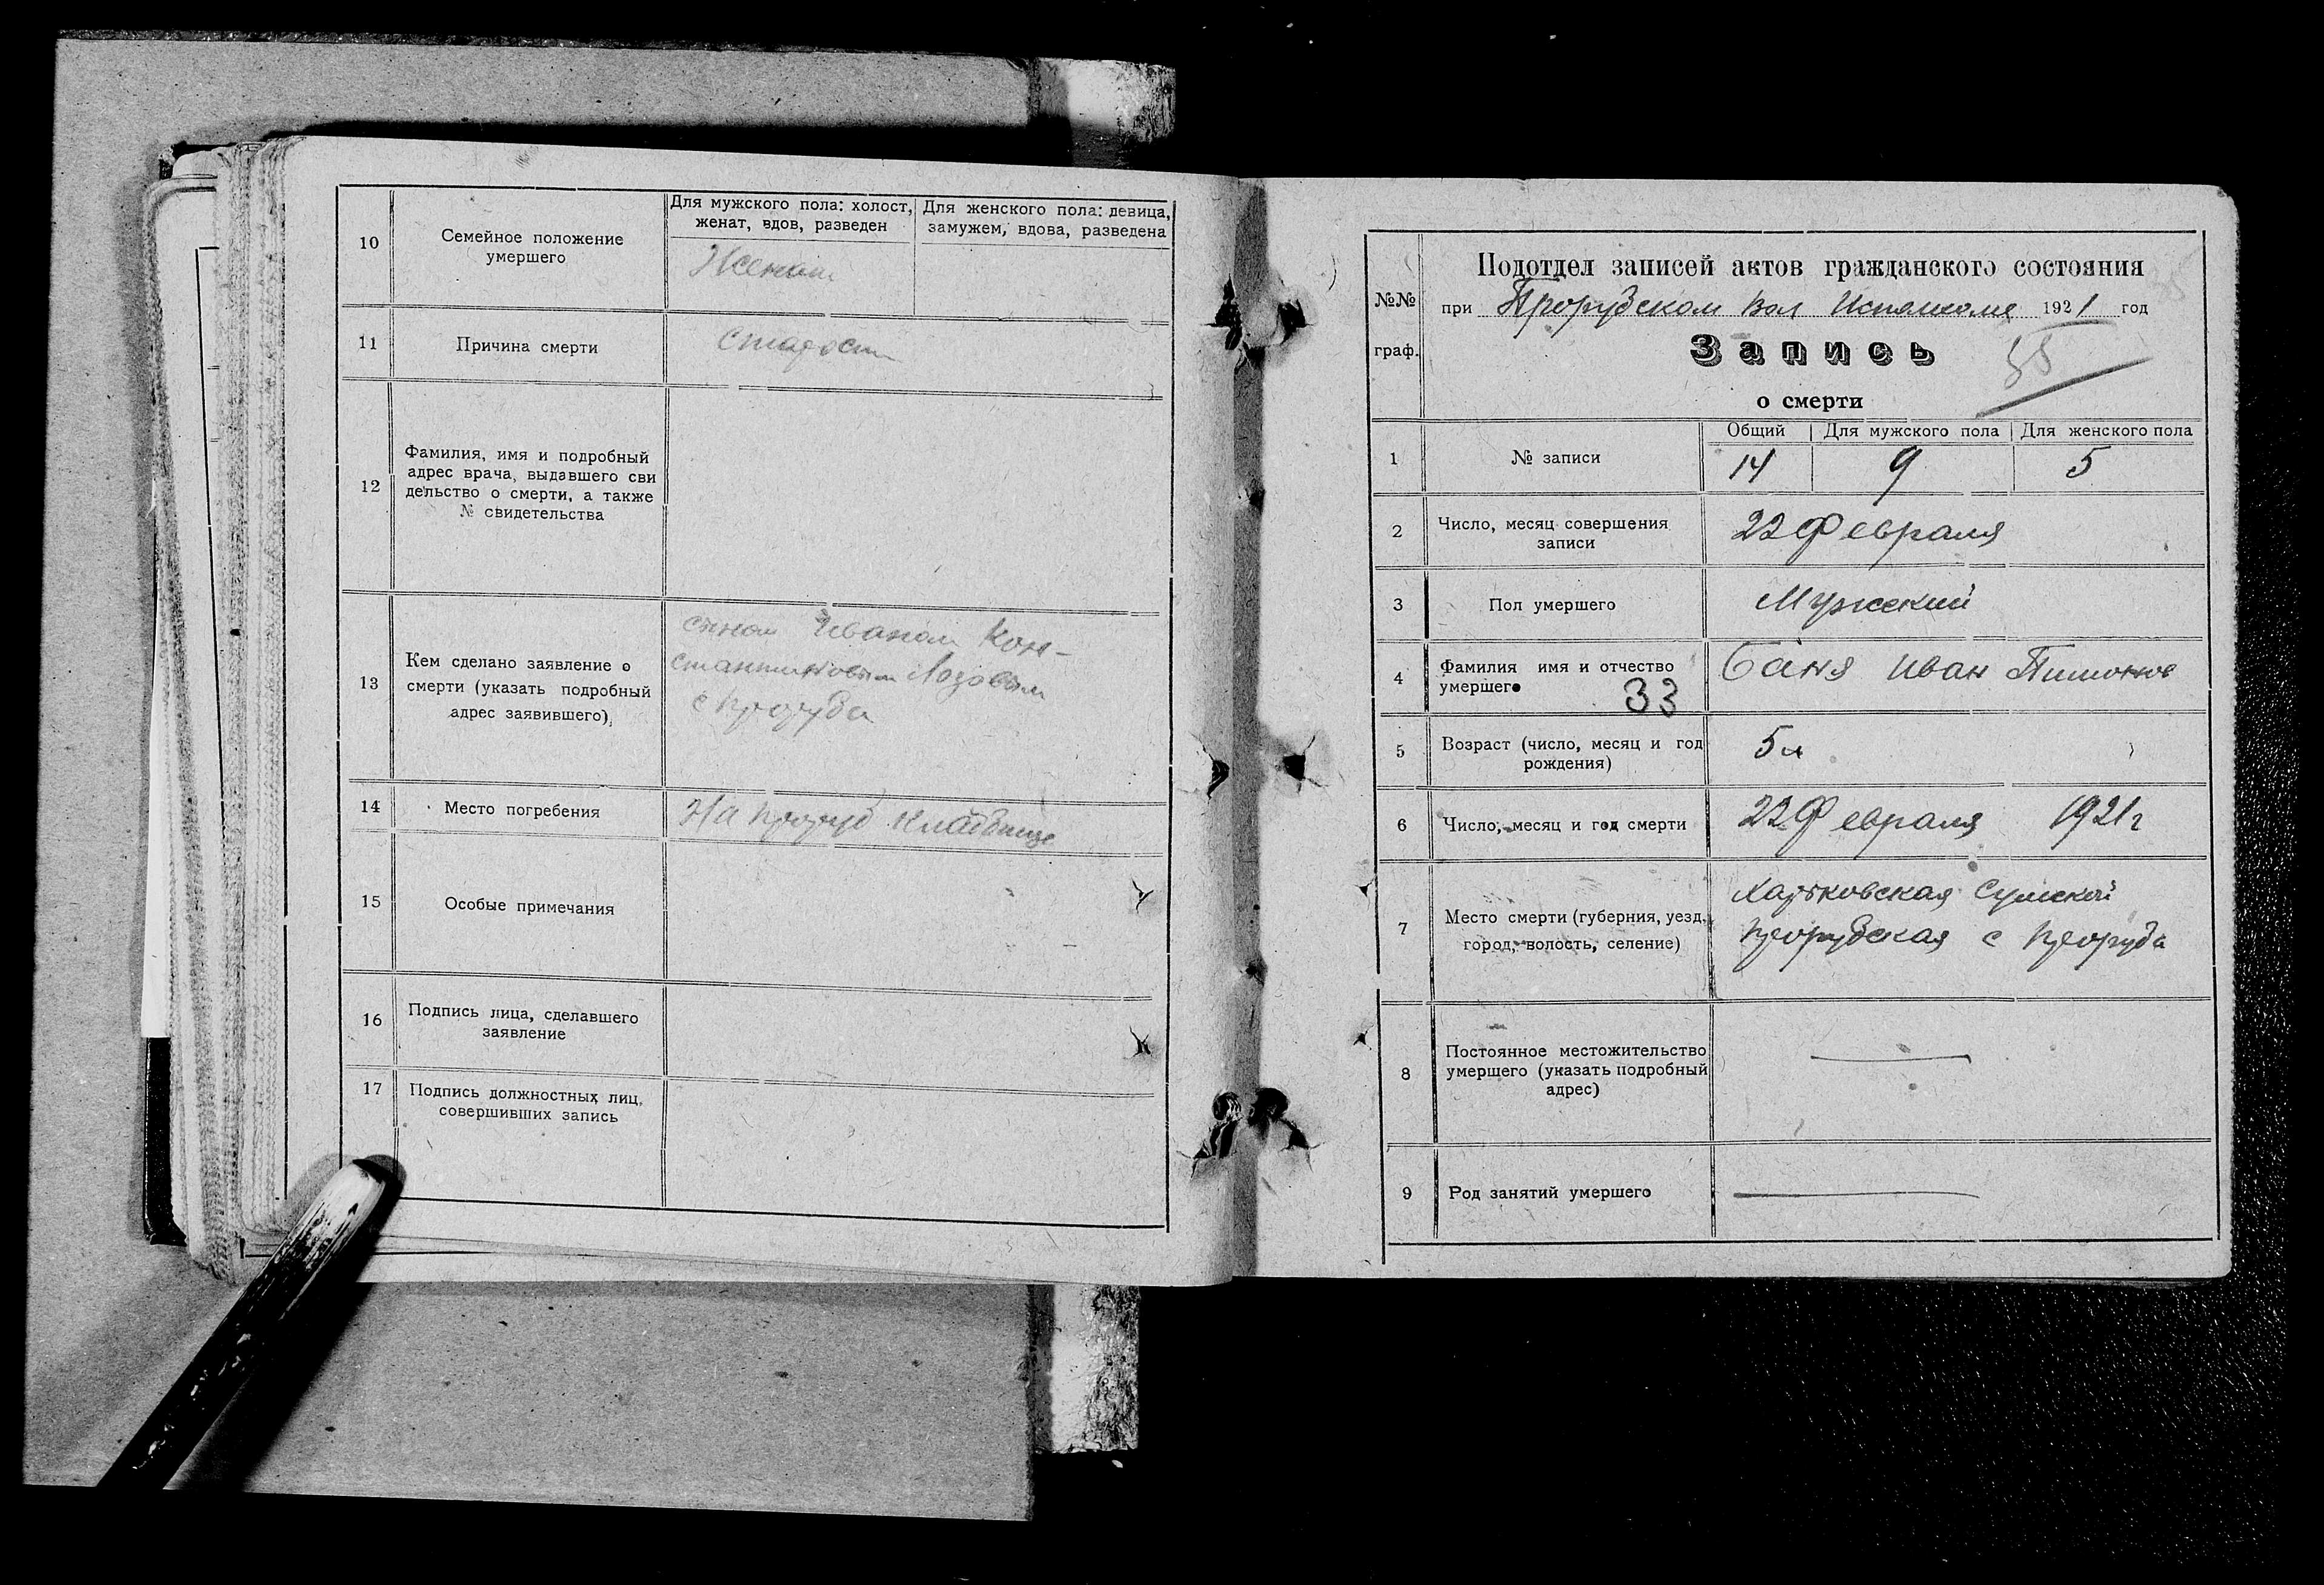 10
Семейное положение
умершего
Для мужского пола: холост,
женат, вдов, разведен
Для женского пола: девица,
замужем, вдова, разведена
Женат
11
Причина смерти
старости
12
Фамилия, имя и подробный
адрес врача, выдавшего сви
дельство о смерти, а также
№ свидетельства
13
Кем сделано заявление о
смерти (указать подробный
адрес заявившего)
сыном Иваном Кон-
стантиновым Лозовым
с Проруба
14
Место погребения
На проруб кладбище
15
Особые примечания
16
Подпись лица, сделавшего
заявление
17
Подпись должностных лиц,
совершивших запись
№№
граф.
Подотдел записей актов гражданского состояния
при Прорубском Вол Исполкоме 1921 год
Запись
55
о смерти
1
№ записи
Общий
Для мужского пола
Для женского пола
14
9
5
2
Число, месяц совершения
записи
22 Февраля
3
Пол умершего
Мужский
4
Фамилия имя и отчество
умершего
33
Баня Иван
5
Возраст (число, месяц и год
рождения)
5 л
6
Число, месяц и год смерти
22 Февраля 1921 г
7
Место смерти (губерния, уезд,
город, волость, селение)
Харьковская Сумской
Прорубская с Проруба
8
Постоянное местожительство
умершего (указать подробный
адрес)
9
Род занятий умершего